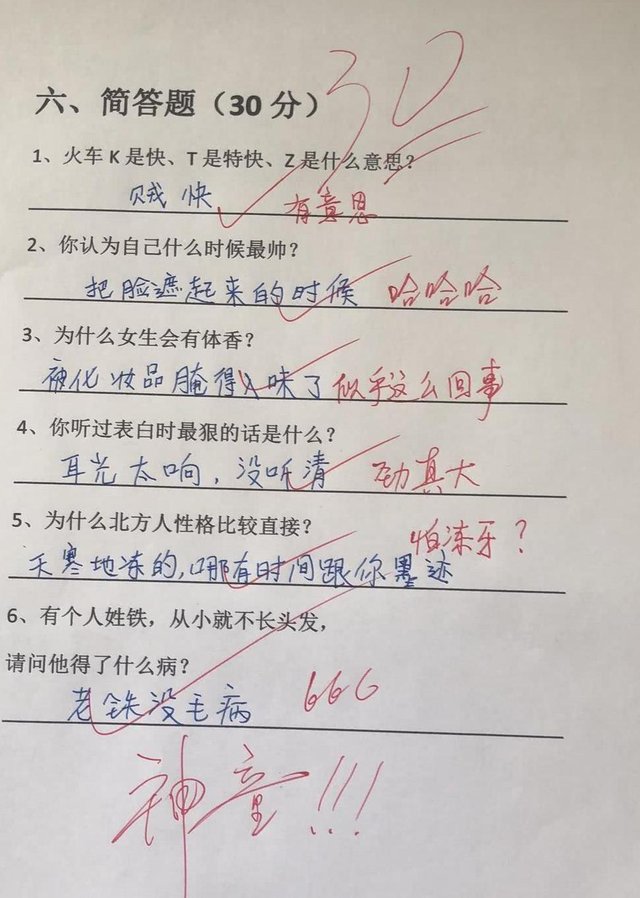 30
六、简答题（30分）
1、火车K是快、T是特快、Z是什么意思？
贼快 有意思
2、你认为自己什么时候最帅？
把脸遮起来的时候 哈哈哈
3、为什么女生会有体香？
被化妆品腌得入味了 似乎这么回事
4、你听过表白时最狠的话是什么？
耳光太响，没听清 劲真大
5、为什么北方人性格比较直接？
怕冻牙？
天寒地冻的，哪有时间跟你墨迹
6、有个人姓铁，从小就不长头发，
请问他得了什么病？
老铁没毛病 666
神童!!!